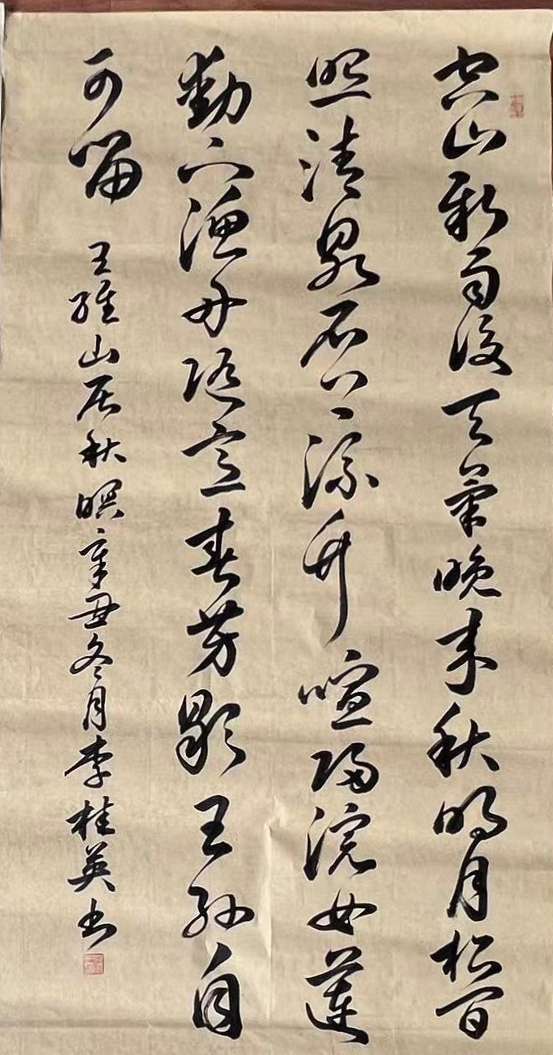 空山新雨後天氣晚来秋明月松間
照清泉石上流竹喧歸浣女蓮
動下漁舟随意春芳歇王孫自
可留 王維山居秋暝辛丑冬月李桂英书